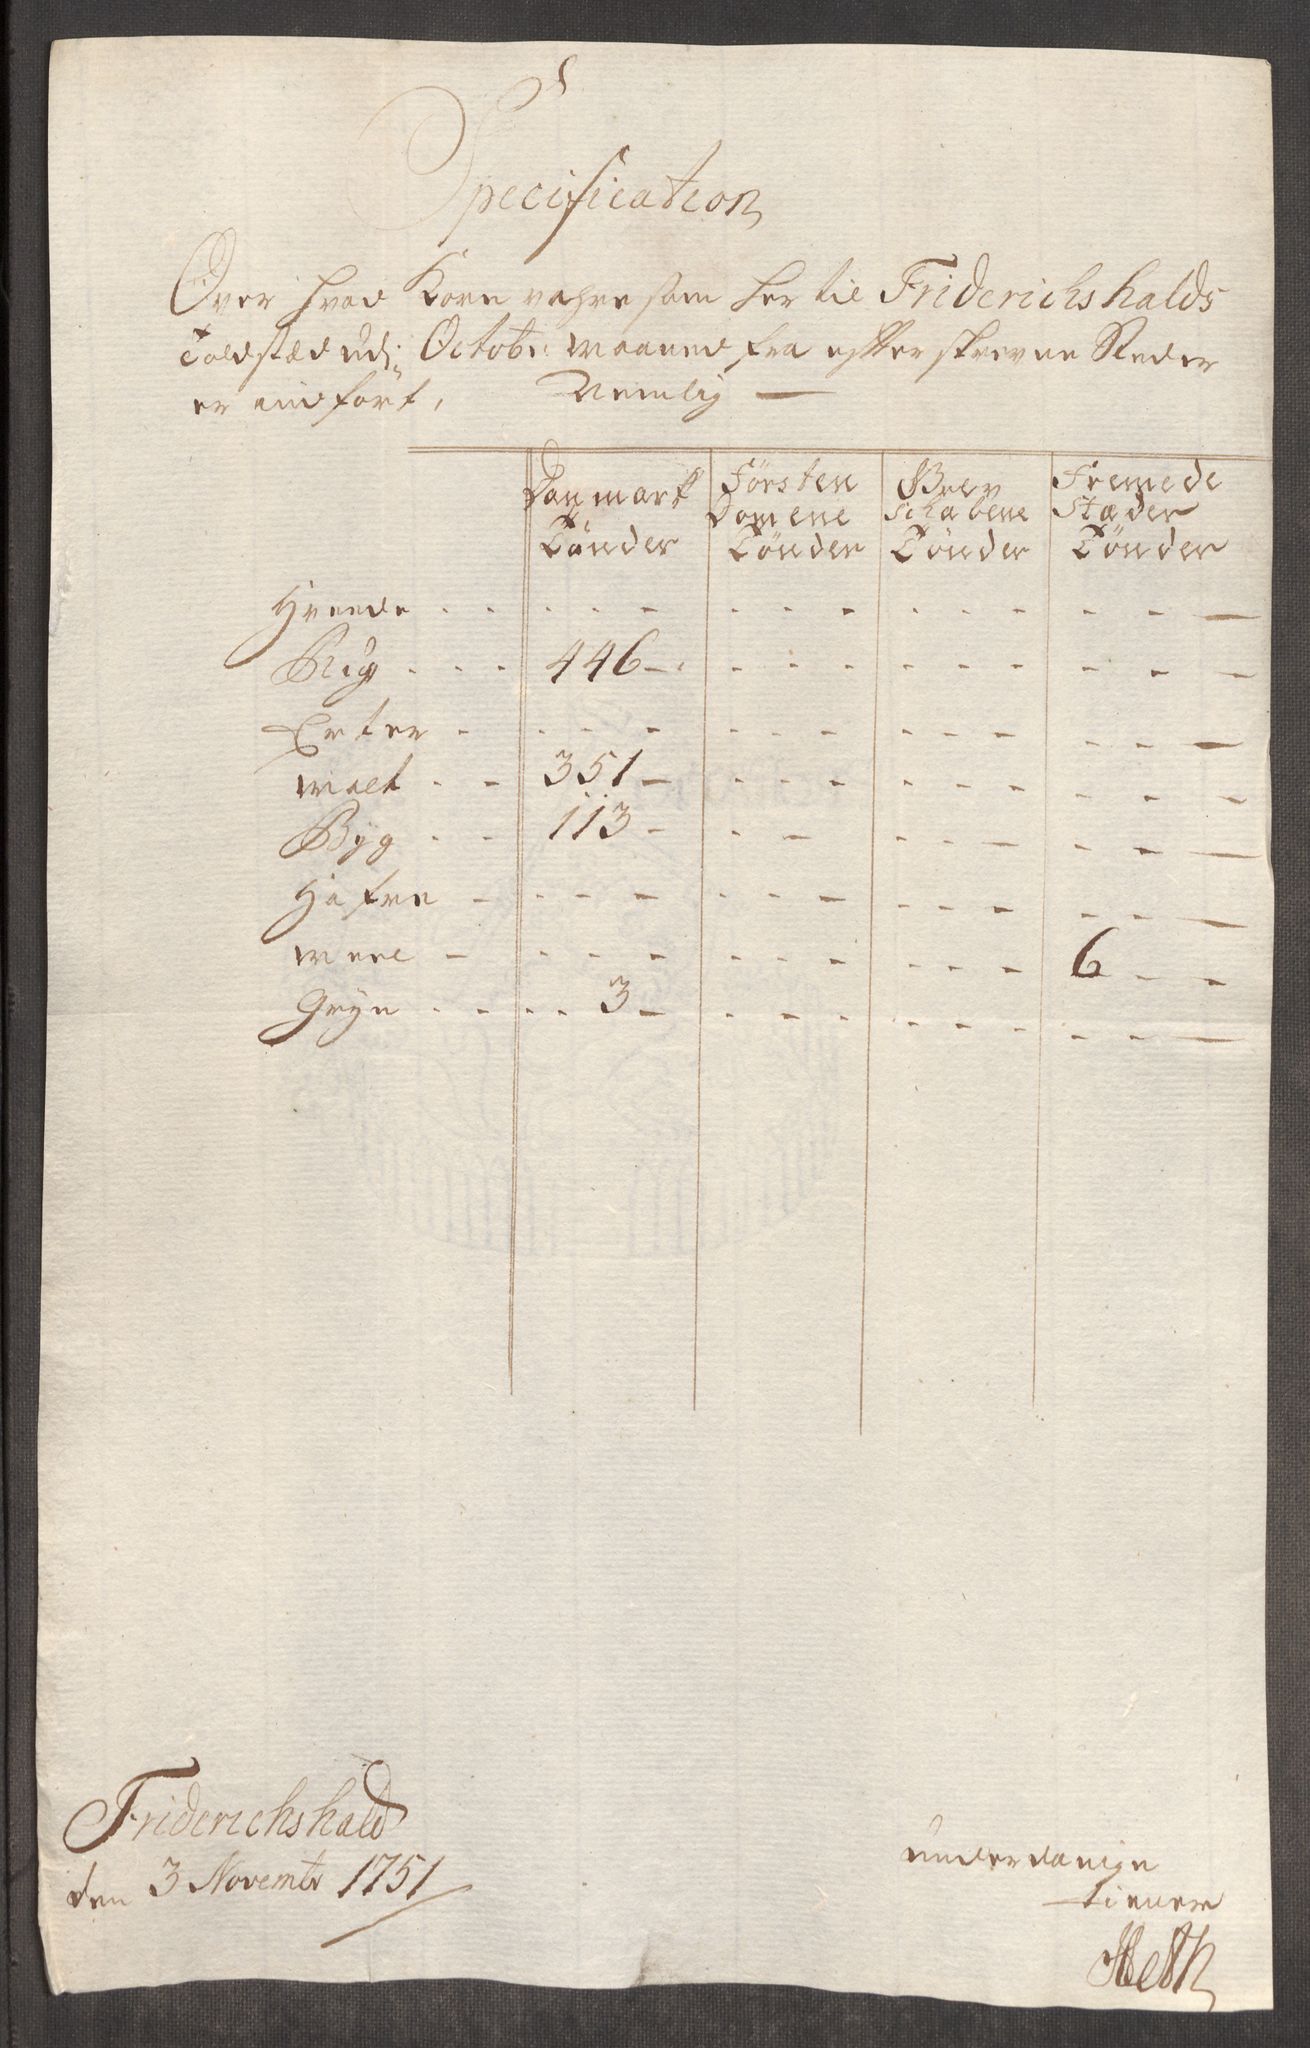 Specification
Over hvad Korn vahre som her til Friderichshalds
Toldstæd udj Octobr: Maaned fra efterskrevne Steder
er indført, Nemlig —
Danmark Tønder | Försten Domene Tønder | Grev schabene Tønder | Fremede Stæder Tønder
Hvede . . . . - - - - - - - - —
Rug . . . 446 - - - - - - - - -
Erter - . . - - - - - - - - - —
Malt . - 351 - - - - - - - - - -
Byg . - 113 - - - - - - - - —
Hafre - - - - - - - - - - - - —
Meel - - - - - - - - - - - 6 - -
Gryn . . - . . 3 - - - - - - - - - —
Friderichshald
den 3 Novembr 1751
underdanige
tienere